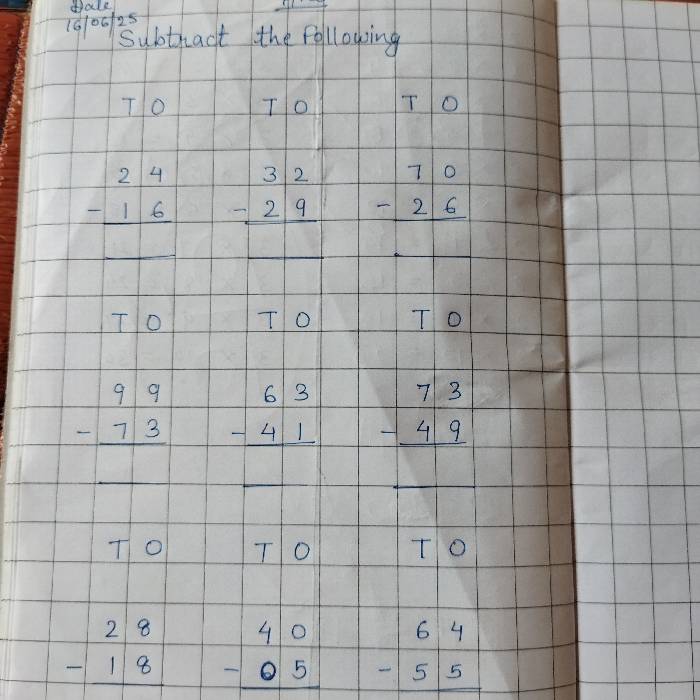 Date
16/06/25
Subtract the following
T O T O T O
2 4 3 2 7 0
- 1 6 - 2 9 - 2 6
T O T O T O
9 9 6 3 7 3
- 7 3 - 4 1 - 4 9
T O T O T O
2 8 4 0 6 4
- 1 8 - 0 5 - 5 5